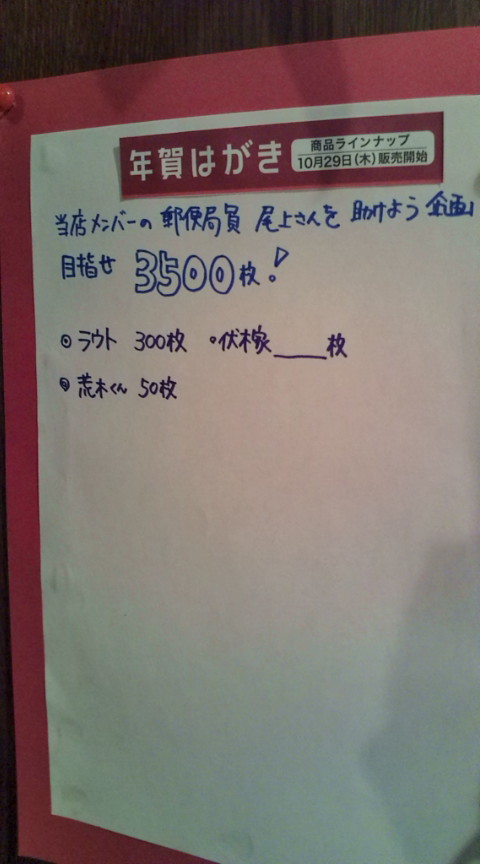 年賀はがき
商品ラインナップ
10月29日(木)販売開始
当店メンバーの 郵便局員 尾上さんを 助けよう 企画
目指せ 3500枚!
◎ ラウト 300枚 ・伏木家____枚
◎ 荒木くん 50枚